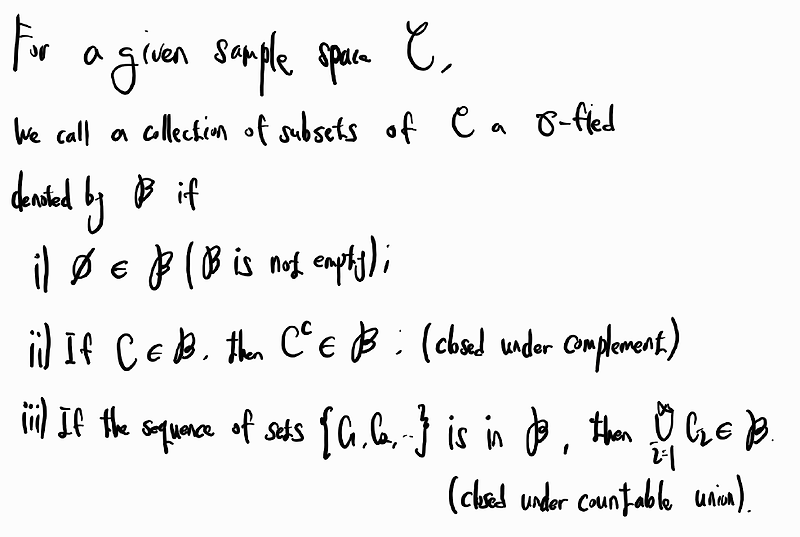 For a given sample space 𝒞,
We call a collection of subsets of 𝒞 a σ-fied
denoted by ℬ if
i) ∅ ∈ ℬ (ℬ is not empty);
ii) If C ∈ ℬ, then Cᶜ ∈ ℬ ; (closed under complement)
iii) If the sequence of sets {C₁, C₂, ..} is in ℬ, then ⋃_{i=1}^∞ Cᵢ ∈ ℬ.
(closed under countable union).